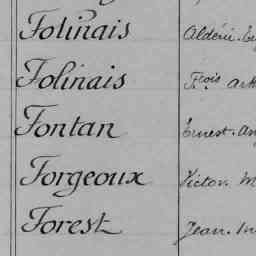 Folinais Aldéric
Folinais Fçois
Fontan Ernest
Forgeoux Victor
Forest Jean